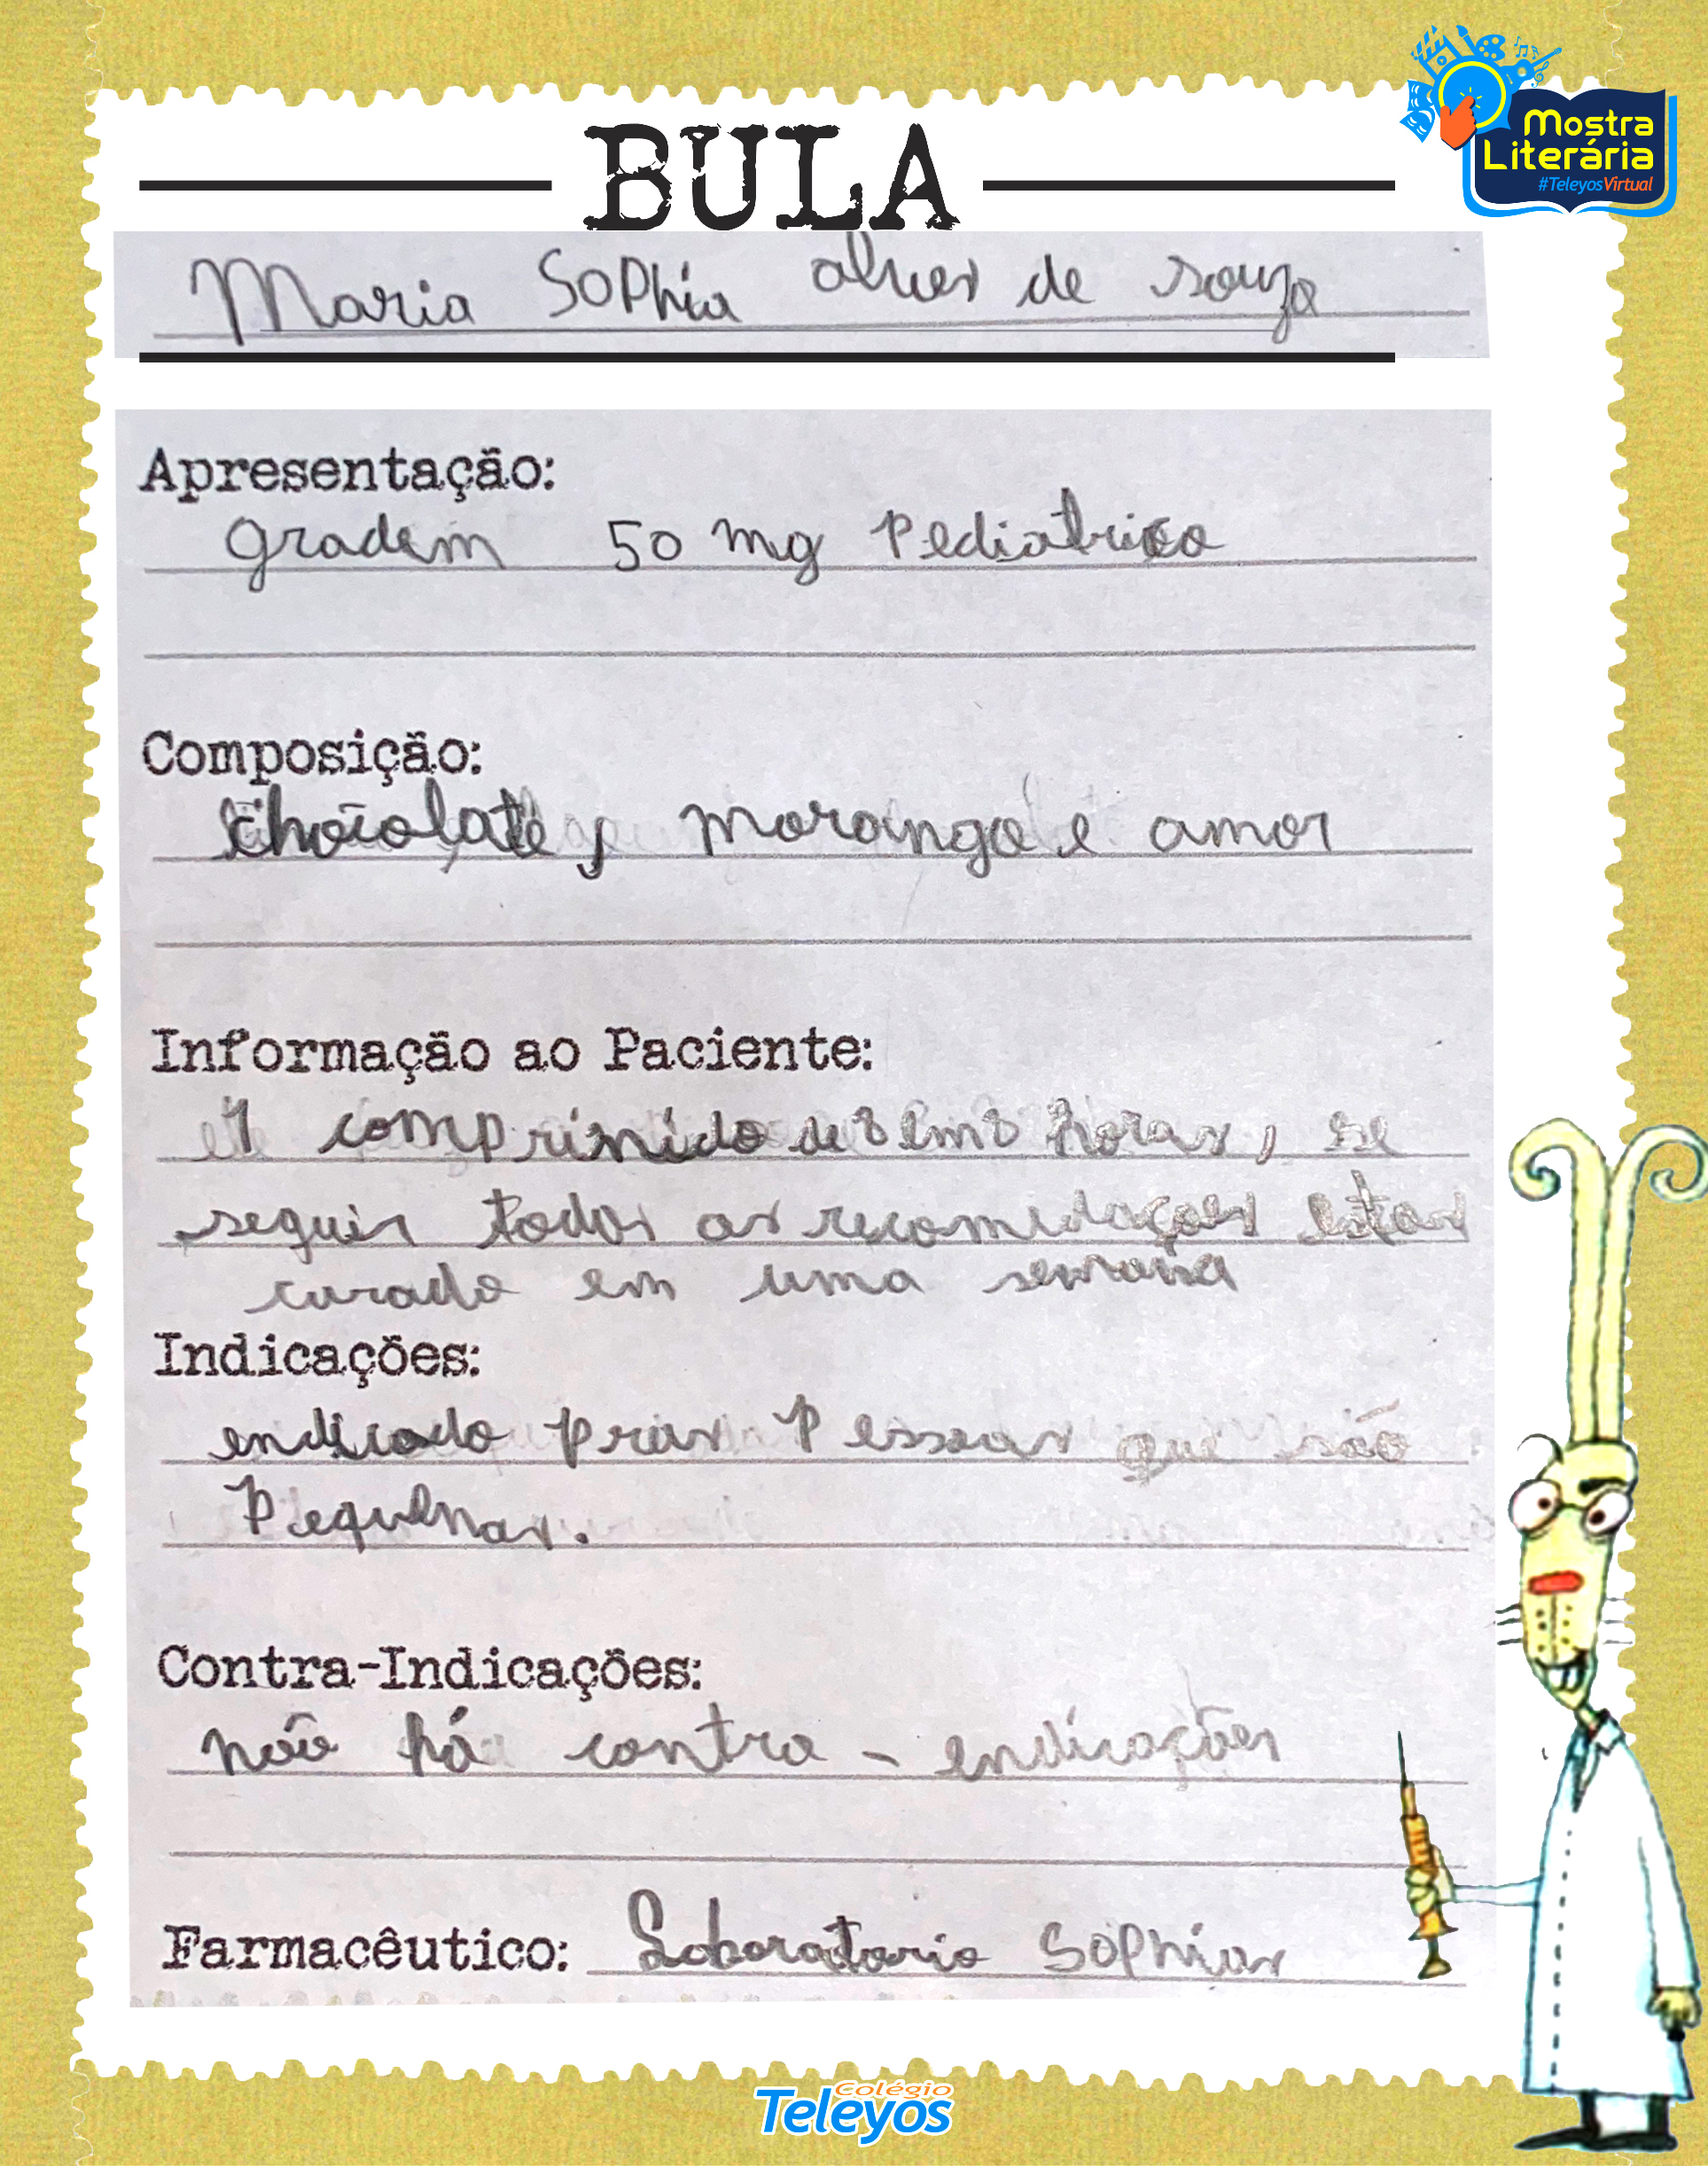 BULA
Mostra
Literária
#TeleyosVirtual
Maria Sophia alves de souza
Apresentação:
gradem 50 mg Pediatrico
Composição:
chocolate, morango e amor
Informação ao Paciente:
1 comprimido de 8 em 8 horas, se
seguir todas as recomedaçoes estar
curado em uma semana
Indicações:
endicado pras Pessoas que são
Pequenas.
Contra-Indicações:
não há contra - endicações
Farmacêutico: Laboratorio Sophias
Colégio
Teleyos